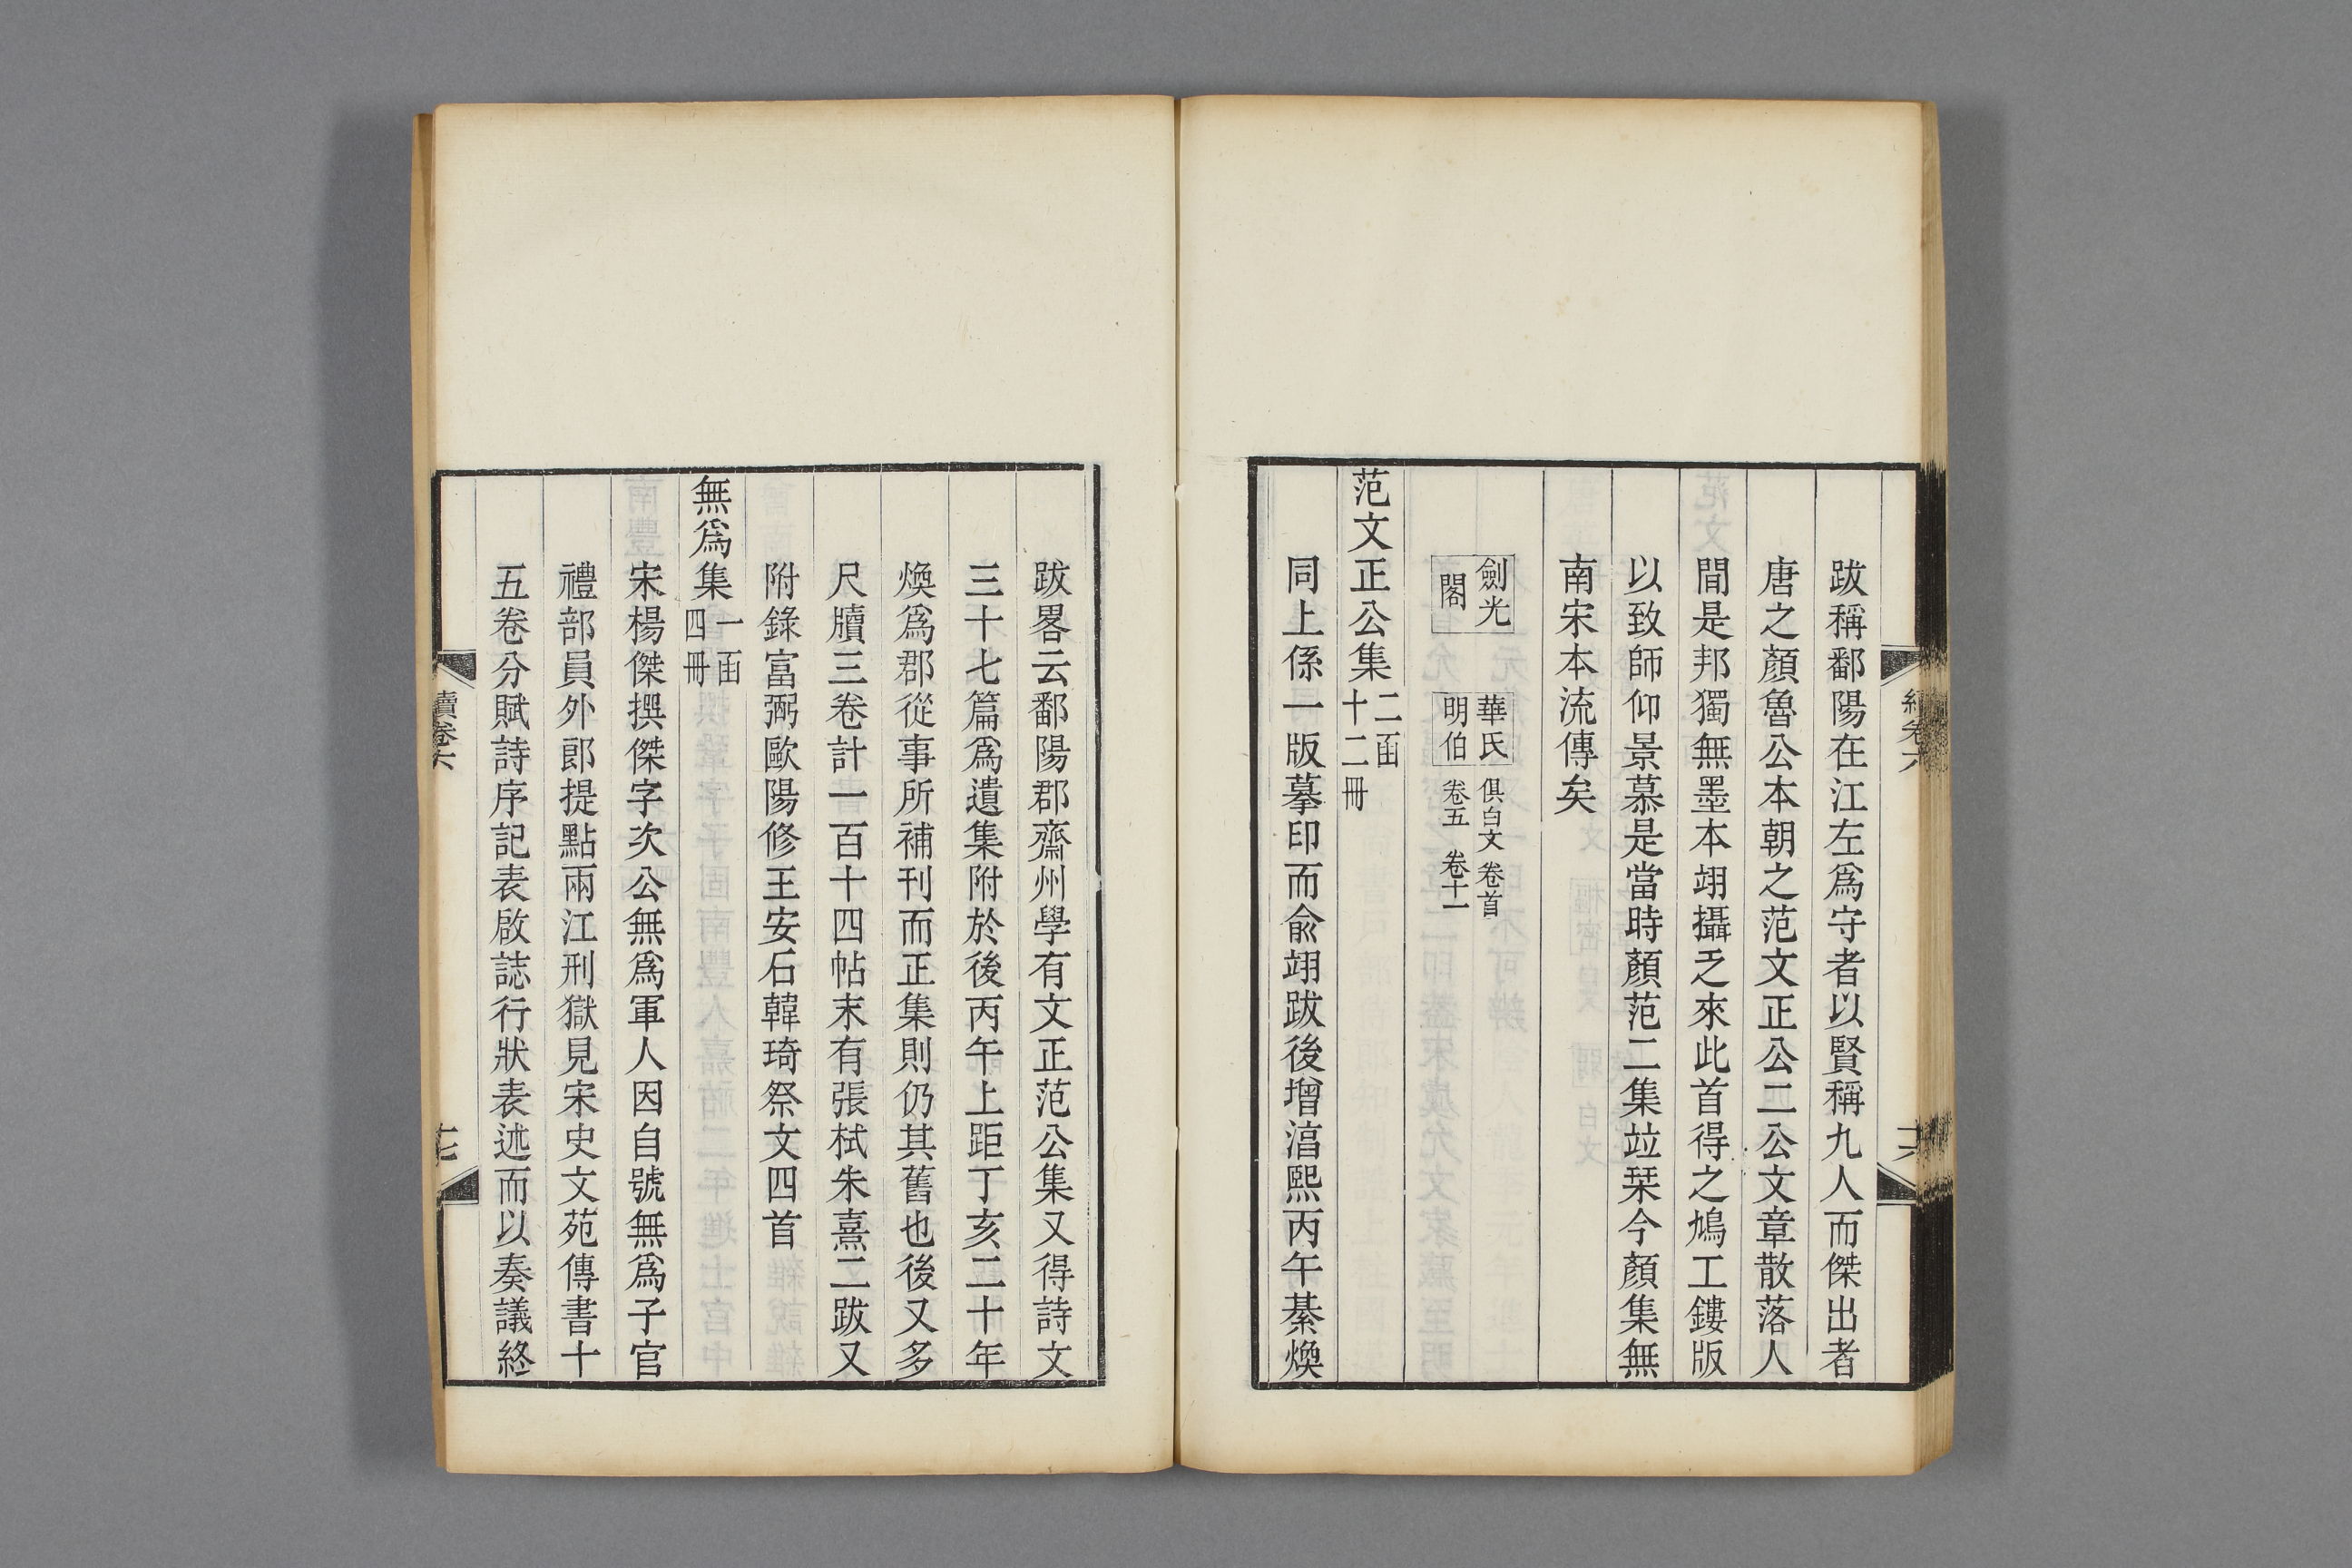 跋稱鄱陽在江左爲守者以賢稱九人而傑出者
唐之顏魯公本朝之范文正公二公文章散落人
間是邦獨無墨本翊攝乏來此首得之鳩工鏤版
以致師仰景慕是當時顏范二集竝栞今顏集無
南宋本流傳矣
劍光
閣
華氏
明伯
俱白文 卷首
卷五 卷十一
范文正公集 二函
十二冊
同上係一版摹印而俞翊跋後增淳熙丙午綦煥
跋畧云鄱陽郡齋州學有文正范公集又得詩文
三十七篇爲遺集附於後丙午上距丁亥二十年
煥爲郡從事所補刊而正集則仍其舊也後又多
尺牘三卷計一百十四帖末有張栻朱熹二跋又
附錄富弼歐陽修王安石韓琦祭文四首
無爲集 一函
四冊
宋楊傑撰傑字次公無爲軍人因自號無爲子官
禮部員外郎提點兩江刑獄見宋史文苑傳書十
五卷分賦詩序記表啟誌行狀表述而以奏議終
續卷六
十七